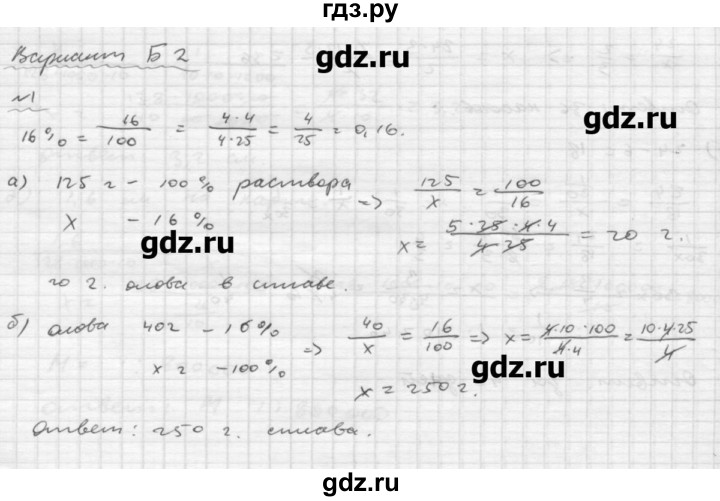 гдз.ру
Вариант Б2
gdz.ru
№1
gdz.ru
16% = 16/100 = 4·4/4·25 = 4/25 = 0,16.
а) 125 г - 100% раствора => 125/x = 100/16
x - 16%
gdz.ru
x = 5·25·4·4/4·25 = 20 г.
20 г. олова в сплаве.
б) олова 40г - 16% => 40/x = 16/100 => x = 4·10·100/4·4 = 10·4·25/4
gdz.ru
x г - 100%
gdz.ru
x = 250 г.
Ответ: 250 г. сплава.
gdz.ru